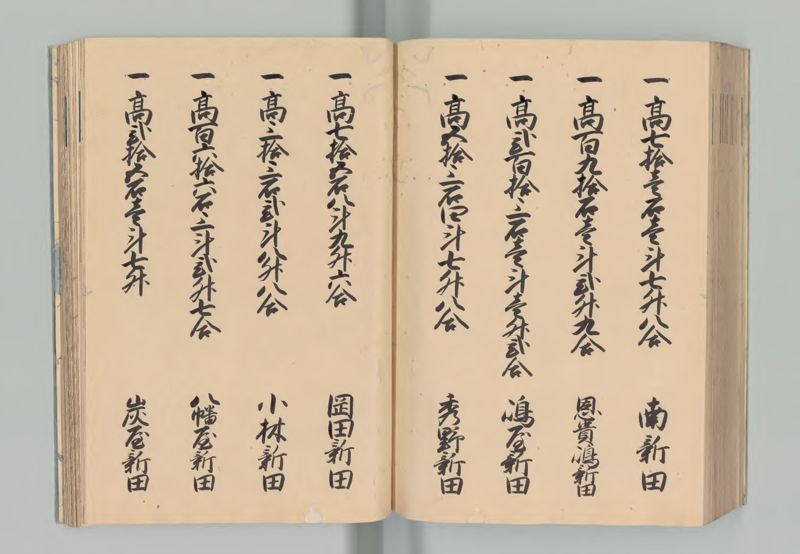 一高七拾壱石壱斗七升八合 南新田
一高百九拾石壱斗弐升九合 恩貴嶋新田
一高弐百拾三石壱斗壱升弐合 嶋屋新田
一高五拾三石四斗七升八合 秀野新田
一高七拾五石八斗九升六合 岡田新田
一高三拾三石弐斗八升八合 小林新田
一高百六拾六石三斗弐升七合 八幡屋新田
一高弐拾五石壱斗七升 炭屋新田